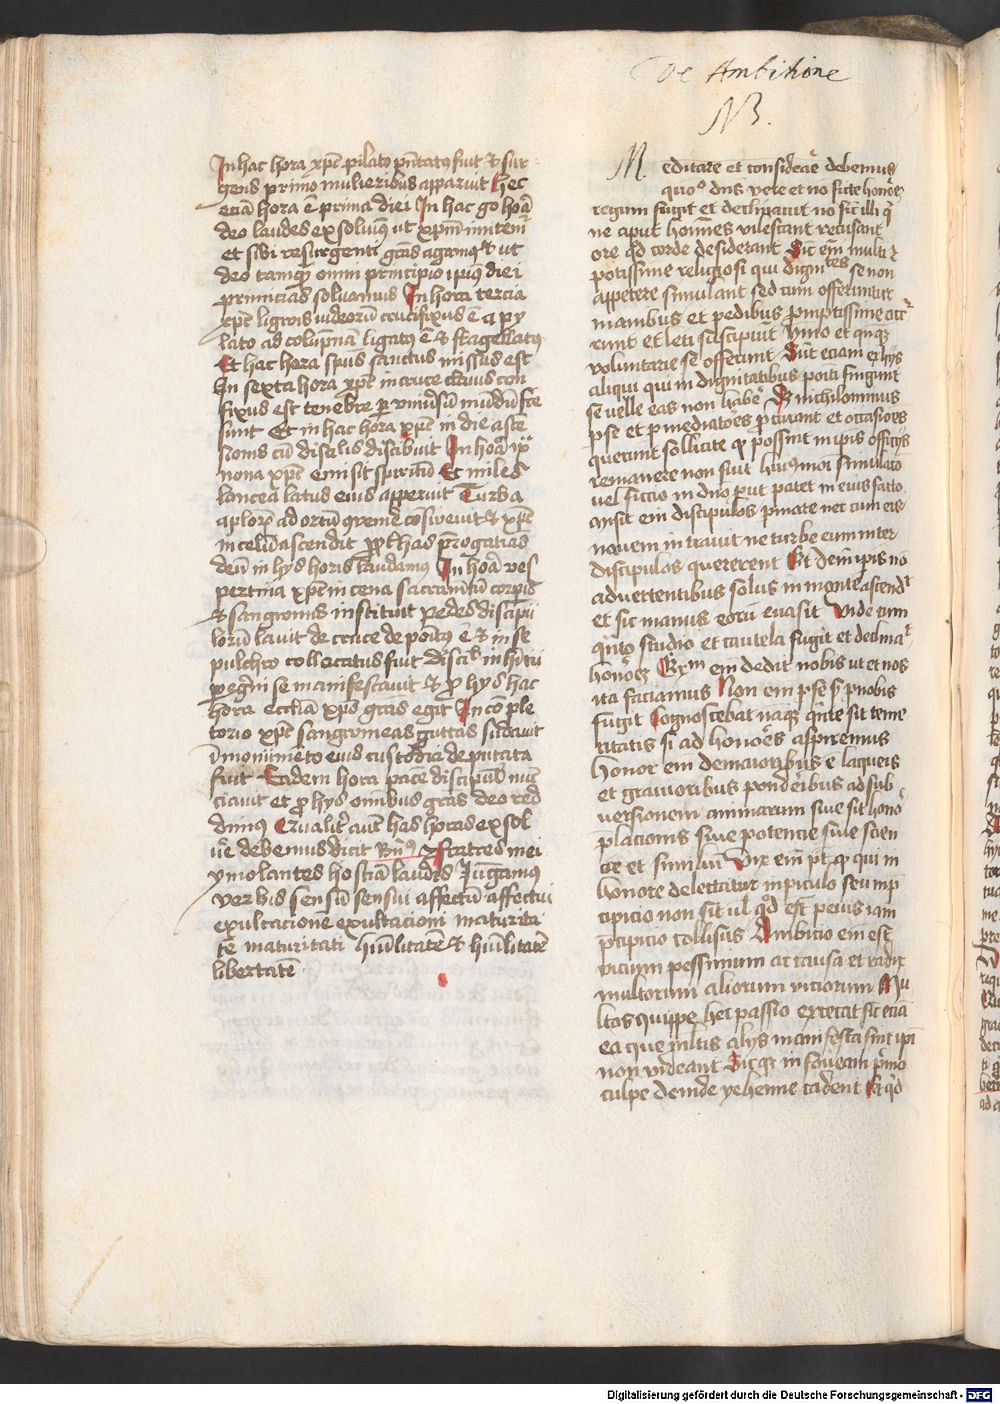 De Ambitione
NB.
In hac hora xpc pilato pntatus fuit et sur
gens primo mulieribus apparuit Hec
eciā hora ē prima diei In hac go hōa
deo laudes exsoluims ut xpm imitem
et sibi resurgenti grās agamus et ut
deo tamqz omni principio ipius diei
primicias soluamus In hora tercia
xpc ligwis iudeorū crucifixus ē a py
lato ad colupnam ligatus ē et flagellatus
Et hac hora spūs sanctus missus est
In sexta hora xpc in cruce clauis con
fixus est tenebre per vniuersū mūdū fcte
sunt Et in hac hora xpc in die asce
sionis cū discilis discibuit In hōa
nona xpc emisit spiritū Et miles
lancea latus eius apperuit Turba
aplorum ad ortū conuenit et xpc
in celū ascendit has prorogatias
deū in hys horis laudamus In hōa ves
pertina xpc in cena sacramtū corpis
et sangwinis instituit pedes discipu
lorū lauit de cruce depoitus ē et in se
pulchro collocatus fuit discilis in hītu
peregrini se manifestauit et pro hys hac
hora eccliā xps grās egit In cōple
torio xpc sangwineas guttas sudauit
monumēto eius custodia deputata
fuit Eadem hora pacē discipulis nun
ciauit et pro hys omibus grās deo red
dimus Qualiter autē has horas exsol
uere debemus dicit Bnus Fratres mei
ymolantes hostiā laudis Jūgamus
verbis sensū sensui affectū affectui
exultacionē exultacioni maturita
tē maturitati huīlitatē et huīlitatē
libertatē
Meditare et considerare debemus
quo dns vere et no ficte honores
regum fugit et declinauit no sic illi qui
ne aput homines vilescant recusant
ore qd corde desiderant Sic em multi et
potissime religiosi qui dignites se non
appetere simulant sed cum offeruntur
manibus et pedibus promptissime accur
runt et leti suscipiut ymo et quique
voluntarie se offerunt Sūt eciam ex hys
aliqui qui in dignitatibus poiti fingunt
se velle eas non habere Et nichilominus
per se et per mediatores procurant et occasiōes
querunt sollicite qz possint in ipis officys
remanere non fuit huiusmoi simulato
vel ficcio in dno put patet in eius facto
ansit em discipulos pmare nec cum eis
nauem intrauit ne turbe eum inter
discipulos quererent Et dem ipis no
aduertentibus solus in monte ascendit
et sic manus eorū euasit Vide cum
quāto studio et cautela fugit et declinat
honores Exm em dedit nobis ut et nos
ita faciamus Non em per se s pro nobis
fugit Cognoscebat namqz quāte sit teme
ritatis si ad honores aspiremus
honor em de maioribus ē laqueis
et grauioribus ponderibus ad sub
versionem animarum siue sit hono
placionis siue potencie siue scien
cie et similiū Vix em pt qz qui in
honore delectatur in piculo seu in p
cipicio non sit ul qd est peius iam
pcipicio collisus Ambicio em est
vicium pessimum ac causa et radix
multorum aliorum viciorum Mu
ltas quippe hec passio excecat sic eciā
ea que multis alys manifesta sint ipi
non videant Sicqz in foueam primo
culpe deinde gehenne cadent Et qd